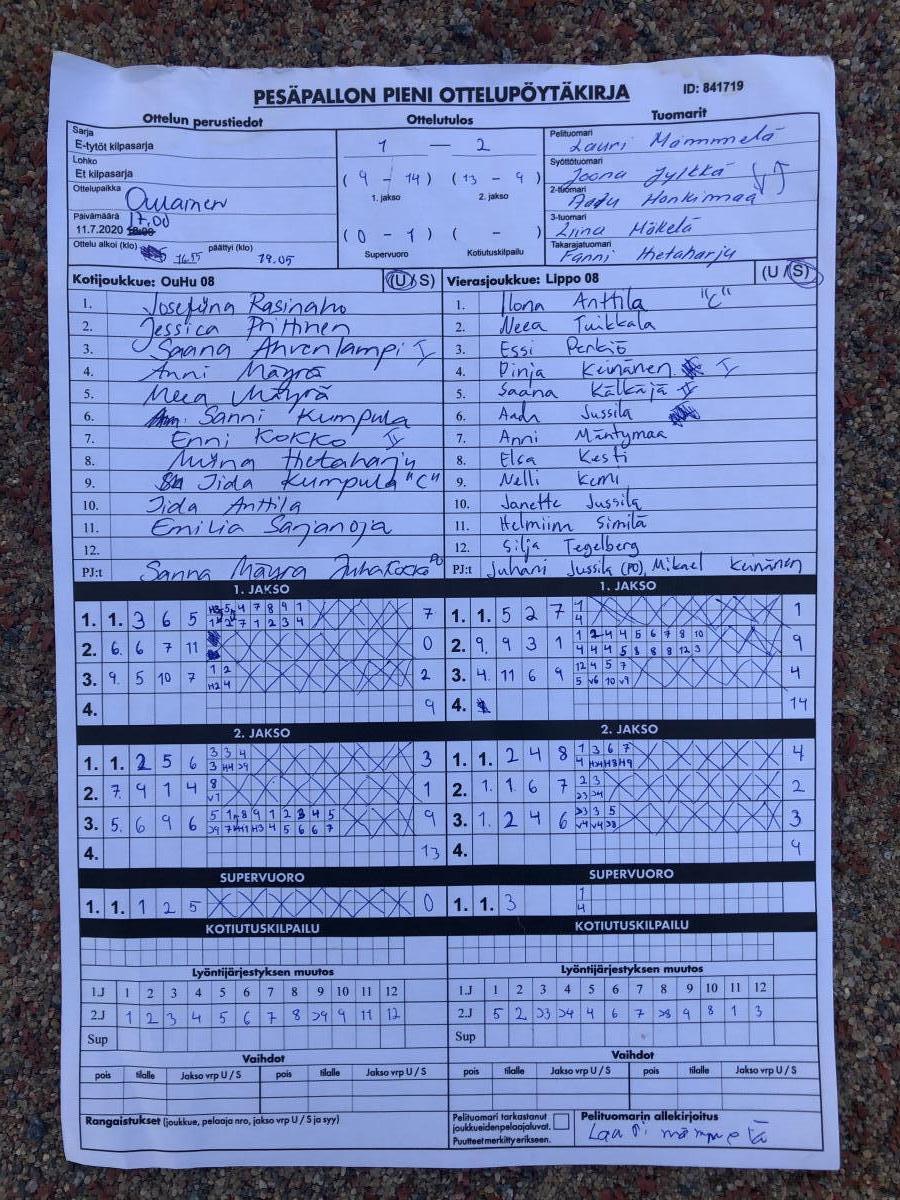 PESÄPALLON PIENI OTTELUPÖYTÄKIRJA ID: 841719
Ottelun perustiedot Ottelutulos Tuomarit
Sarja
E-tytöt kilpasarja
Lohko
Et kilpasarja
Ottelupaikka Oulainen
Päivämäärä 17.00
11.7.2020
Ottelu alkoi (klo) 16.55 päättyi (klo) 19.05
1 — 2
( 9 - 14 ) ( 13 - 9 )
1. jakso 2. jakso
( 0 - 1 ) ( - )
Supervuoro Kotiutuskilpailu
Pelituomari Lauri Mämmelä
Syöttötuomari Joona Jylkkä
2-tuomari Aadu Honkimaa
3-tuomari Liina Mökelä
Takarajatuomari Fanni Hietaharju
Kotijoukkue: OuHu 08 (U/S)
1. Josefiina Rasinaho
2. Jessica Prittinen
3. Saana Ahvenlampi I
4. Anni Mäyrä
5. Meea Mäyrä
6. Sanni Kumpula
7. Enni Kokko II
8. Miina Hietaharju
9. Iida Kumpula "C"
10. Iida Anttila
11. Emilia Sarjanoja
12.
PJ:t Sanna Mäyrä Juha Kokko
Vierasjoukkue: Lippo 08 (U/S)
1. Ilona Anttila "C"
2. Neea Tuikkala
3. Essi Perkiö
4. Pinja Keinänen I
5. Saana Kälkäjä II
6. Aada Jussila
7. Anni Mäntymaa
8. Elsa Kesti
9. Nelli Kemi
10. Janette Jussila
11. Helmiina Similä
12. Silja Tegelberg
PJ:t Juhani Jussila (PO) Mikael Keinänen
1. JAKSO
1. 1. 3 6 5 7
2. 6. 6 7 11 0
3. 9. 5 10 7 1 2 2
H2 4
4. 9
1. JAKSO
1. 1. 5 2 7 1 1
4
2. 9. 9 3 1 1 2 4 4 5 6 7 8 10 9
4 4 4 5 8 8 8 12 3
3. 4. 11 6 9 12 4 5 7 4
5 v6 10 v9
4. 14
2. JAKSO
1. 1. 2 5 6 3 3 4 3
3 H4 >9
2. 7. 9 1 4 8 1
v7
3. 5. 6 9 6 9
4. 13
2. JAKSO
1. 1. 2 4 8 1 3 6 7 4
2. 1. 1 6 7 2 3 2
>3 >4
3. 1. 2 4 6 >3 3 5 3
v4 v4 >8
4. 9
SUPERVUORO
1. 1. 1 2 5 0
SUPERVUORO
1. 1. 3 1
4
KOTIUTUSKILPAILU
KOTIUTUSKILPAILU
Lyöntijärjestyksen muutos
1.J 1 2 3 4 5 6 7 8 9 10 11 12
2.J 1 2 3 4 5 6 7 8 >9 9 11 12
Sup
Lyöntijärjestyksen muutos
1.J 1 2 3 4 5 6 7 8 9 10 11 12
2.J 5 2 >3 >4 4 6 7 >8 9 8 1 3
Sup
Vaihdot
pois tilalle Jakso vrp U / S pois tilalle Jakso vrp U / S
Vaihdot
pois tilalle Jakso vrp U / S pois tilalle Jakso vrp U / S
Rangaistukset (joukkue, pelaaja nro, jakso vrp U / S ja syy)
Pelituomari tarkastanut
joukkueiden pelaajaluvat.
Puutteet merkitty erikseen.
Pelituomarin allekirjoitus